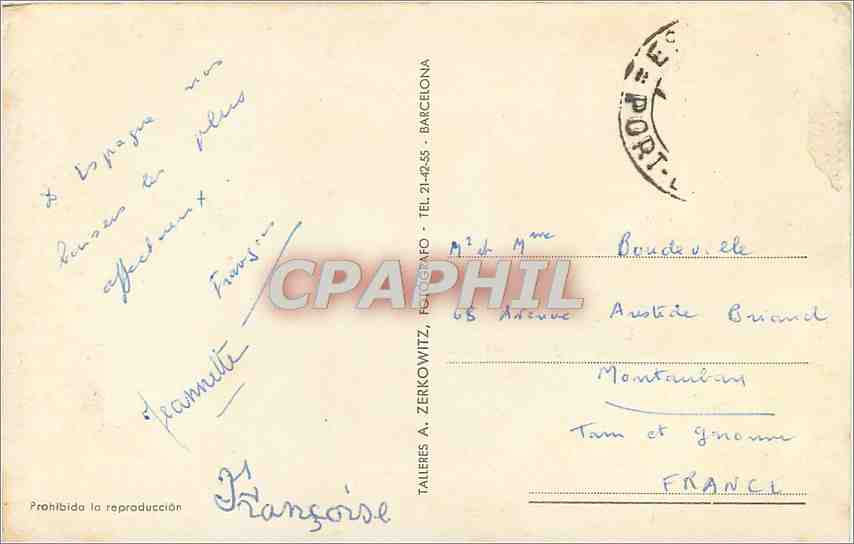 D'Espagne nos
baisers les plus
affectueux.
François
Jeannette
Françoise
Prohibida la reproducción
TALLERES A. ZERKOWITZ, FOTÓGRAFO - TEL. 21-42-55 - BARCELONA
PORT-
Mr et Mme Boudeville
68 Avenue Aristide Briand
Montauban
Tarn et Garonne
FRANCE
CPAPHIL